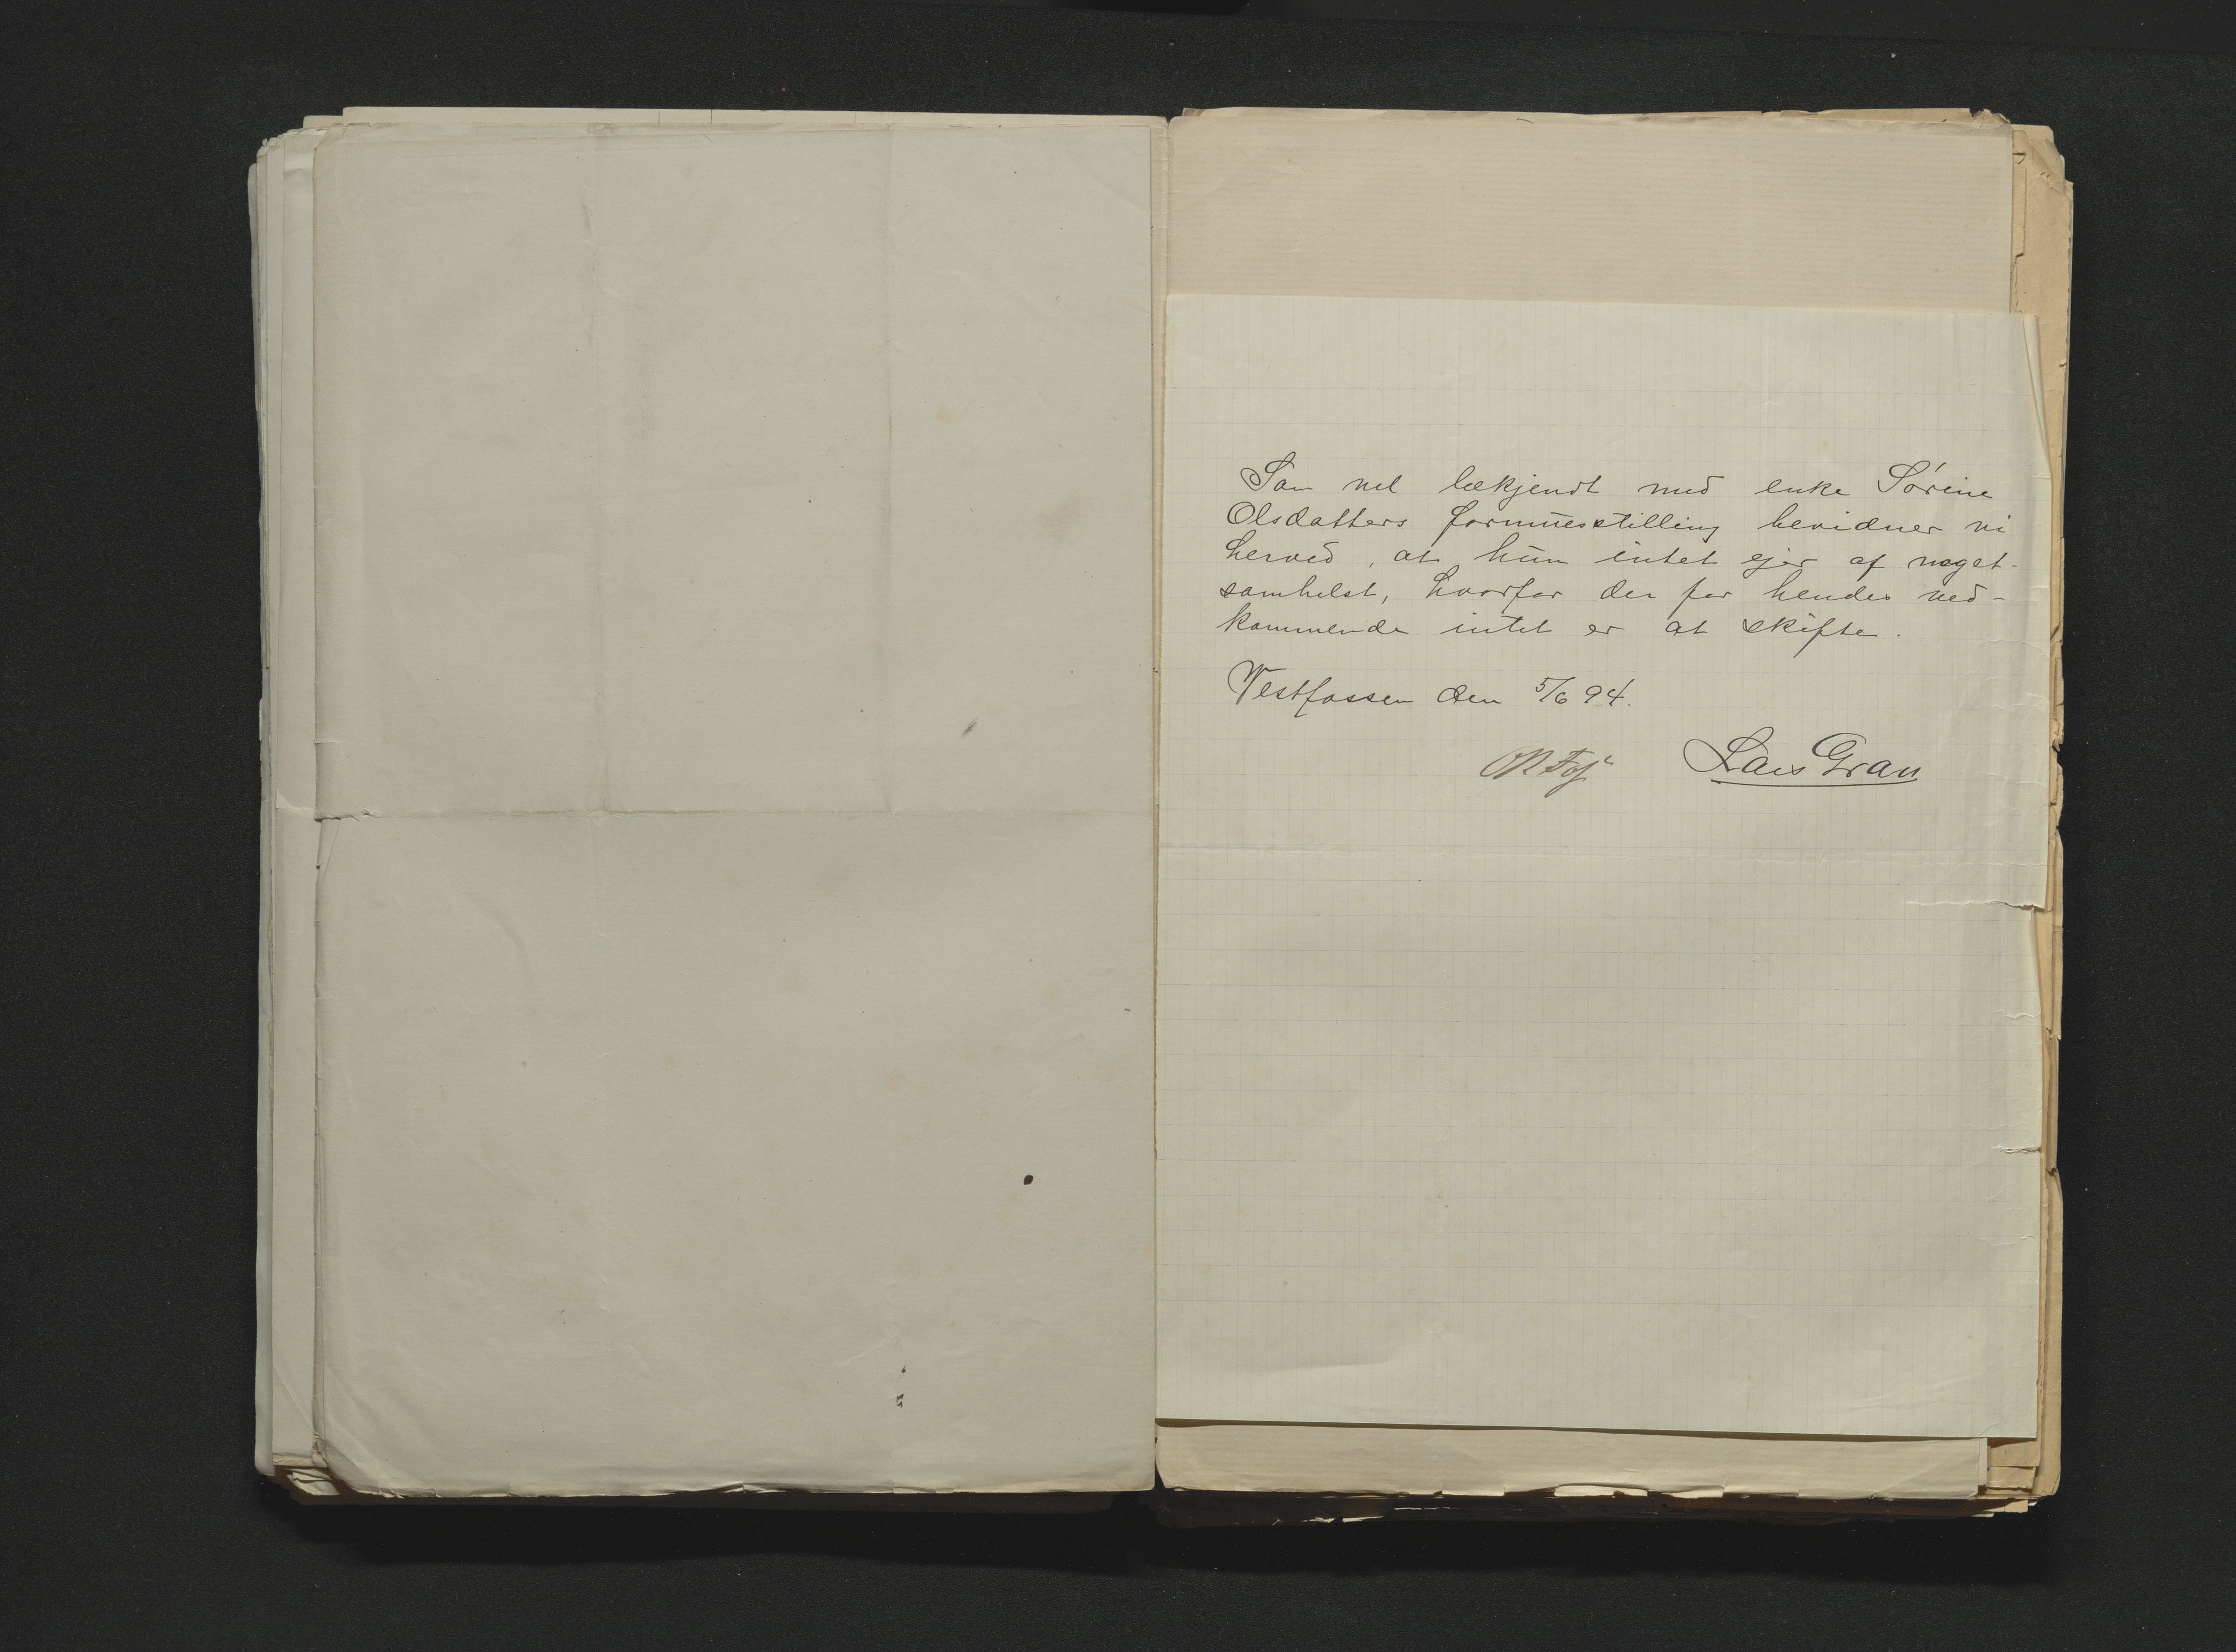 Som vel bekjendt med enke Sørine
Olsdatters formuesstilling bevidner vi
herved, at hun intet ejer af noget-
somhelst, hvorfor der for hendes ved-
kommende intet er at skifte.
Vestfossen den 5/6 94.
Lars Gran